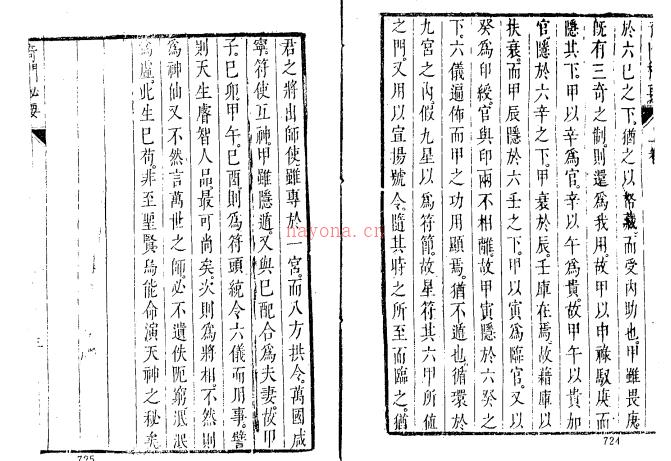 於六巳之下。猶之以帑藏。而受內助也。甲雖畏庚。
既有三奇之制。則還爲我用。故甲以申祿馭庚而
隱其下。甲以辛爲官。辛以午爲貴。故甲午以貴加
官隱於六辛之下。甲衰於辰。壬庫在焉。故藉庫以
扶衰。而甲辰隱於六壬之下。甲以寅爲臨官。又以
癸爲印綬。官與印兩不相離。故甲寅隱於六癸之
下。六儀遍佈而甲之功用顯焉。猶不遁也。循環於
九宮之內。假九星以爲符節。故星符其六甲所值
之門。又用以宣揚號令。隨其時之所至而臨之。猶
724
君之將出師使。雖專於一宮。而八方拱令。萬國咸
寧。符使互神。甲雖隱遁。又與巳配合爲夫妻。故甲
子。巳卯。甲午。巳酉則爲符頭統令六儀而用事。譬
則天生睿智人品。最可尚矣。次則爲將相。不然則
爲神仙又不然言萬世之師。必不遺佚阨窮泯泯
爲虛。此生巳苟。非至聖賢烏能命演天神之秘矣
奇門必要
三
725
nayona.cn